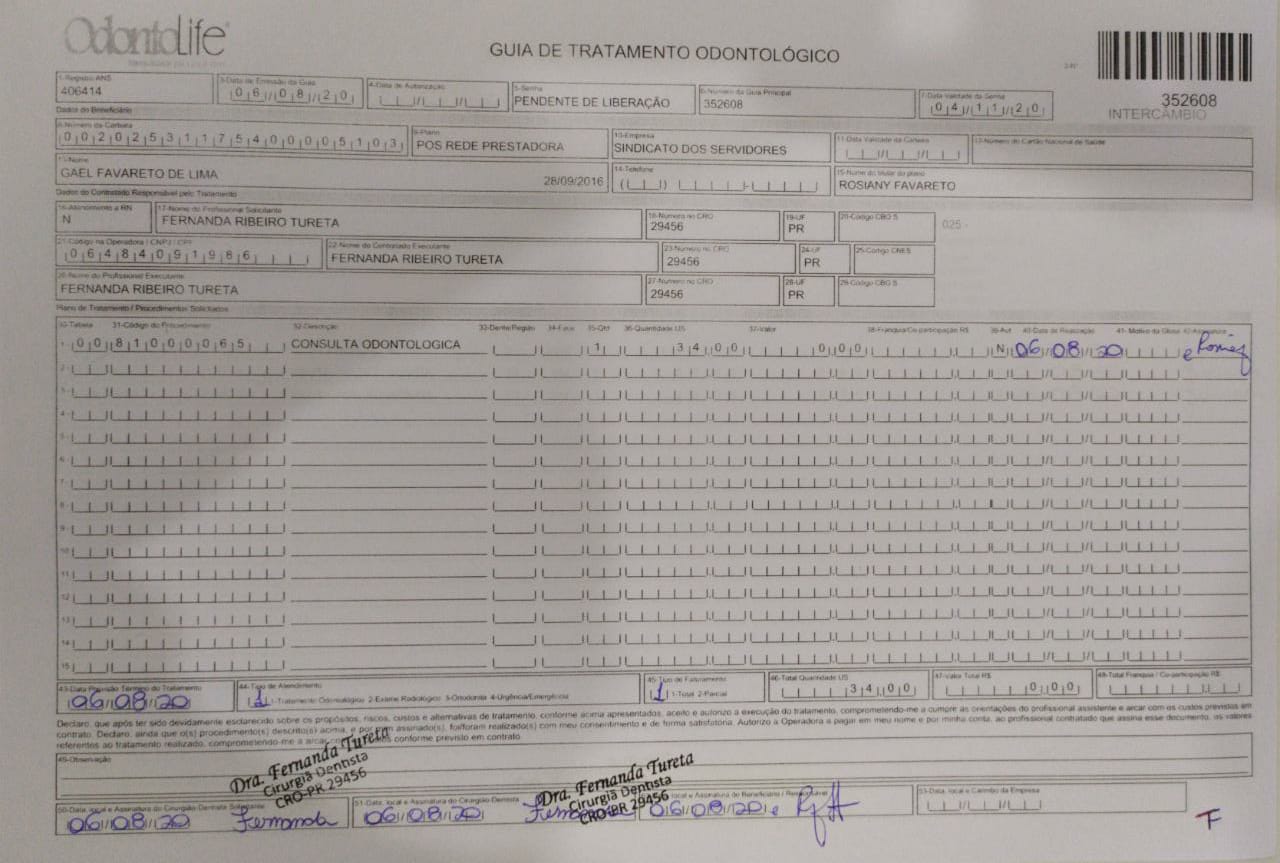 OdontoLife
GUIA DE TRATAMENTO ODONTOLÓGICO
352608
INTERCÂMBIO
1-Registro ANS
406414
3-Data de Emissão da Guia
06/08/20
4-Data de Autorização
5-Senha
PENDENTE DE LIBERAÇÃO
6-Número da Guia Principal
352608
7-Data Validade da Senha
04/11/20
Dados do Beneficiário
8-Número da Carteira
00202531175400005103
9-Plano
POS REDE PRESTADORA
10-Empresa
SINDICATO DOS SERVIDORES
11-Data Validade da Carteira
12-Número do Cartão Nacional de Saúde
13-Nome
GAEL FAVARETO DE LIMA 28/09/2016
14-Telefone
15-Nome do titular do plano
ROSIANY FAVARETO
Dados do Contratado Responsável pelo Tratamento
16-Atendimento a RN
N
17-Nome do Profissional Solicitante
FERNANDA RIBEIRO TURETA
18-Número no CRO
29456
19-UF
PR
20-Código CBO S
025 -
21-Código na Operadora / CNPJ / CPF
06484091986
22-Nome do Contratado Executante
FERNANDA RIBEIRO TURETA
23-Número no CRO
29456
24-UF
PR
25-Código CNES
26-Nome do Profissional Executante
FERNANDA RIBEIRO TURETA
27-Número no CRO
29456
28-UF
PR
29-Código CBO S
Plano de Tratamento / Procedimentos Solicitados
30-Tabela 31-Código do Procedimento 32-Descrição 33-Dente/Região 34-Face 35-Qtd 36-Quantidade US 37-Valor 38-Franquia/Co-participação R$ 39-Aut 40-Data de Realização 41- Motivo da Glosa 42-Assinatura
1- 00 81000065 CONSULTA ODONTOLOGICA 1 34,00 0,00 N 06/08/20
2-
3-
4-
5-
6-
7-
8-
9-
10-
11-
12-
13-
14-
15-
43-Data Previsão Término do Tratamento
06/08/20
44-Tipo de Atendimento
1 1-Tratamento Odontológico 2-Exame Radiológico 3-Ortodontia 4-Urgência/Emergência
45-Tipo de Faturamento
1 1-Total 2-Parcial
46-Total Quantidade US
34,00
47-Valor Total R$
0,00
48-Total Franquia / Co-participação R$
Declaro, que após ter sido devidamente esclarecido sobre os propósitos, riscos, custos e alternativas de tratamento, conforme acima apresentados, aceito e autorizo a execução do tratamento, comprometendo-me a cumprir as orientações do profissional assistente e arcar com os custos previstos em
contrato. Declaro, ainda que o(s) procedimento(s) descrito(s) acima, e por mim assinado(s), foi/foram realizado(s) com meu consentimento e de forma satisfatória. Autorizo a Operadora a pagar em meu nome e por minha conta, ao profissional contratado que assina esse documento, os valores
referentes ao tratamento realizado, comprometendo-me a arcar conforme previsto em contrato.
49-Observação
Dra. Fernanda Tureta
Cirurgiã Dentista
CRO-PR 29456
Dra. Fernanda Tureta
Cirurgiã Dentista
CRO-PR 29456
50-Data, local e Assinatura do Cirurgião-Dentista Solicitante
06/08/20 Fernanda
51-Data, local e Assinatura do Cirurgião-Dentista
06/08/20 Fernanda
local e Assinatura do Beneficiário / Responsável
06/08/20
53-Data, local e Carimbo da Empresa
F